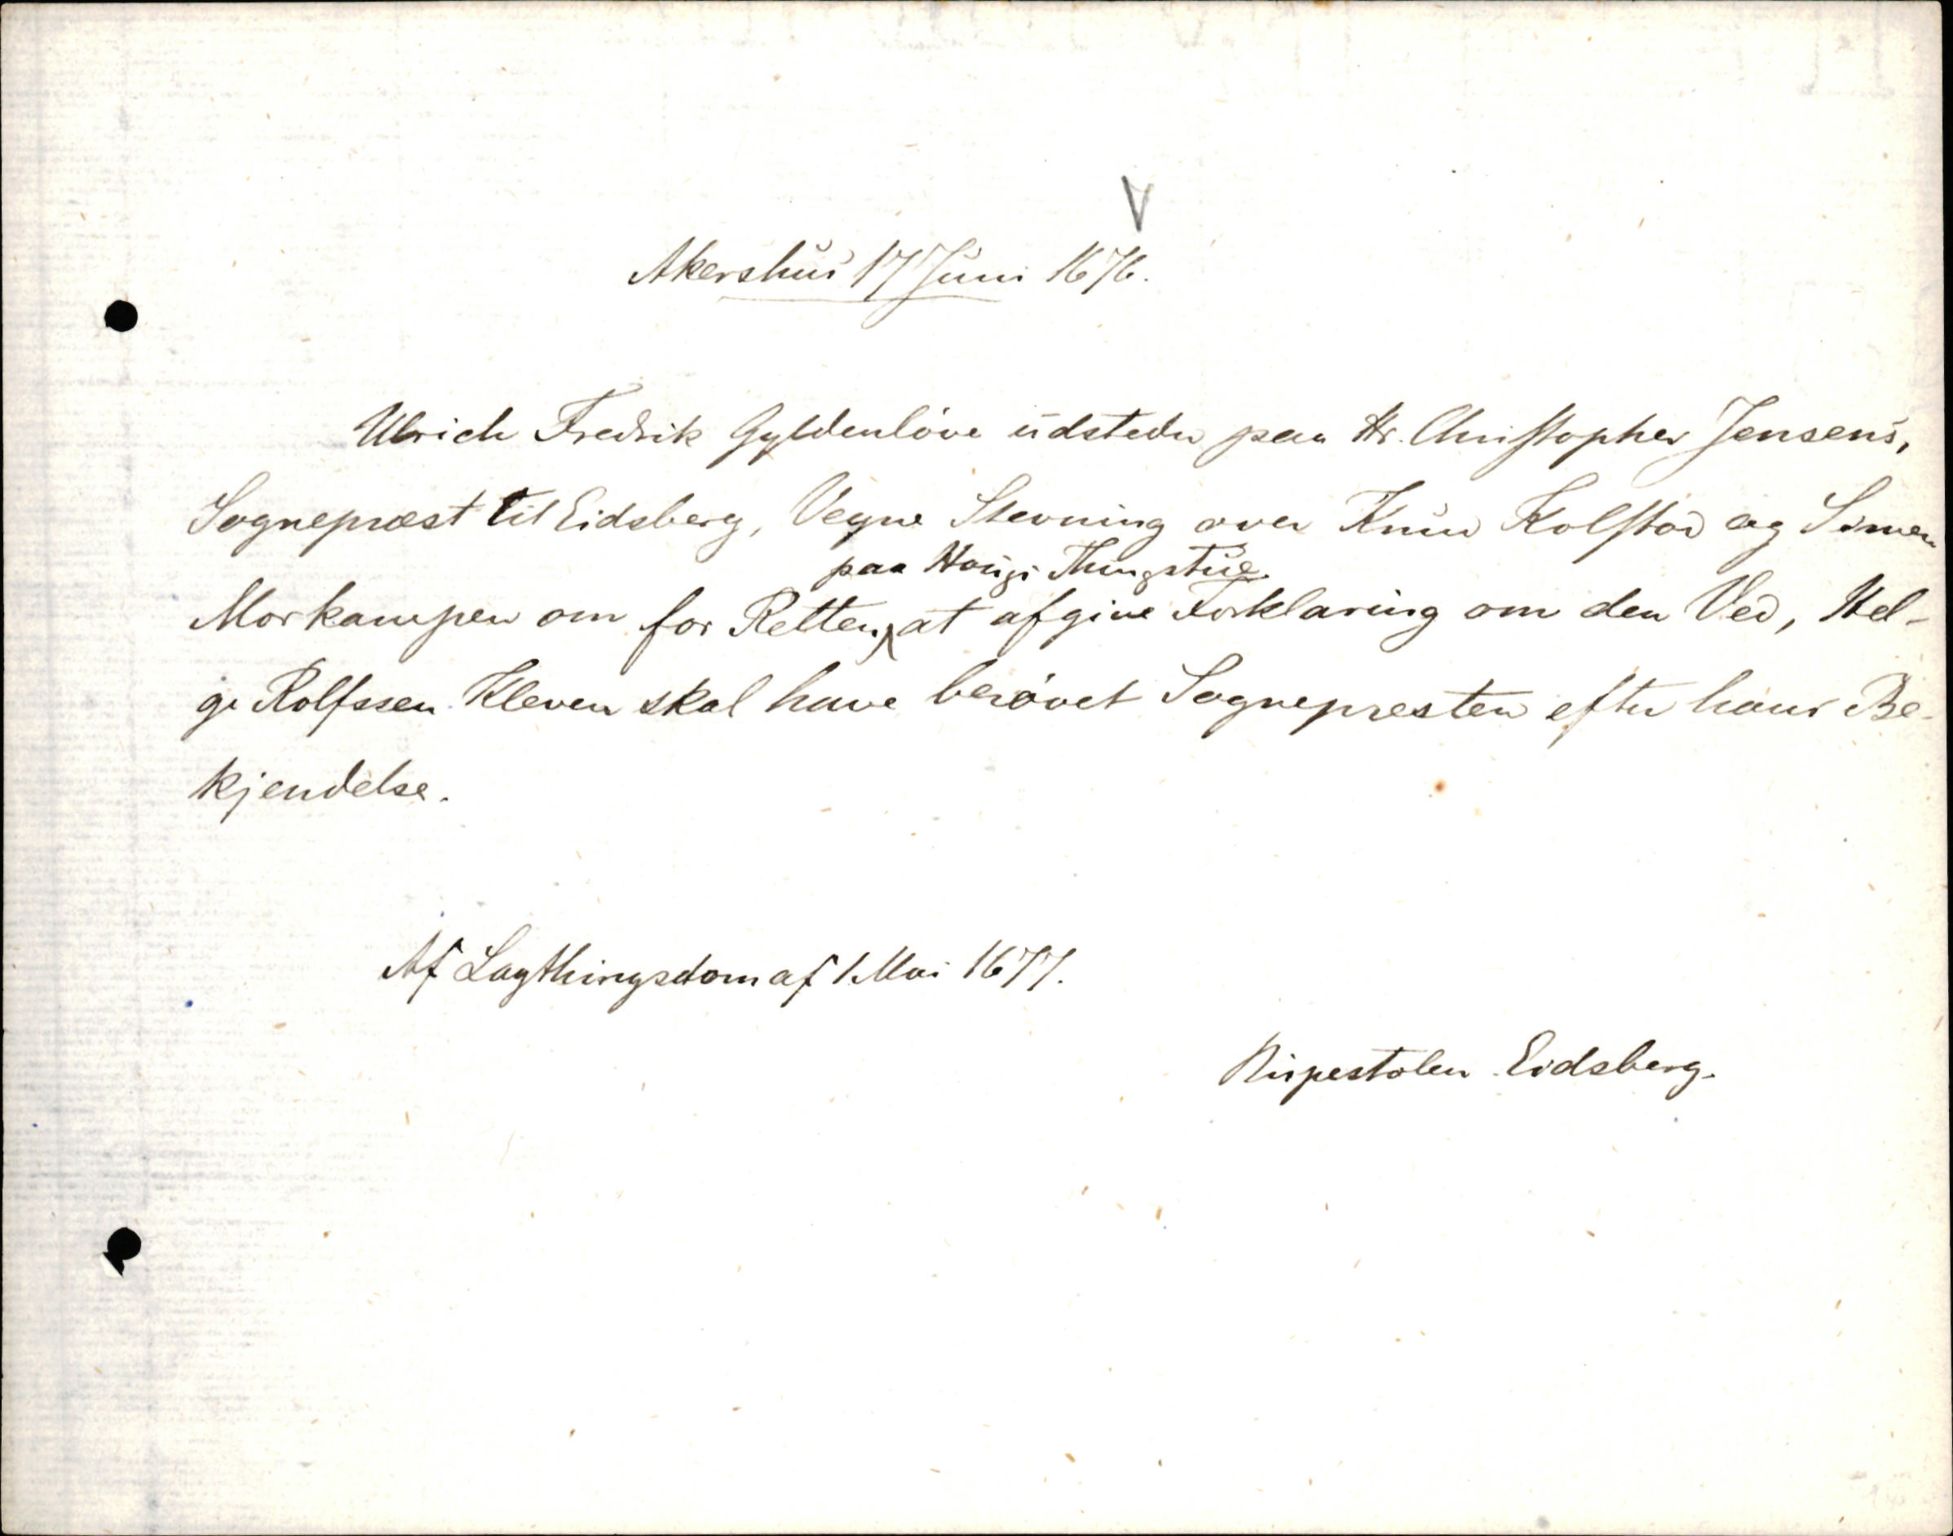 V
Akershus 17 Juni 1676.
Ulrich Fredrik Gyldenløve udsteder paa Hr. Christopher Jensens,
Sognepræst til Eidsberg, Vegne Stevning over Knud Kolstad og Simen
paa Haugs Thingstue
Morkampen om for Retten at afgive Forklaring om den Ved, Hel-
ge Rolfssen Kleven skal have berøvet Sognepresten efter hans Be-
kjendelse.
Af Lagthingsdom af 1 Mai 1677.
Ripestolen Eidsberg.